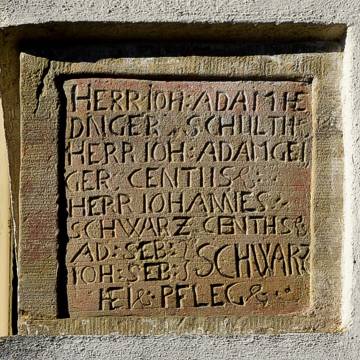 HERR IOH: ADAM HE
DNIGER SCHULTH
HERR IOH: ADAM GEI
GER CENTHS &:
HERR IOHANNES
SCHWARZ CENTHS &
AD: SEB: } SCHWARZ
IOH: SEB: }
HEI & PFLEG &: